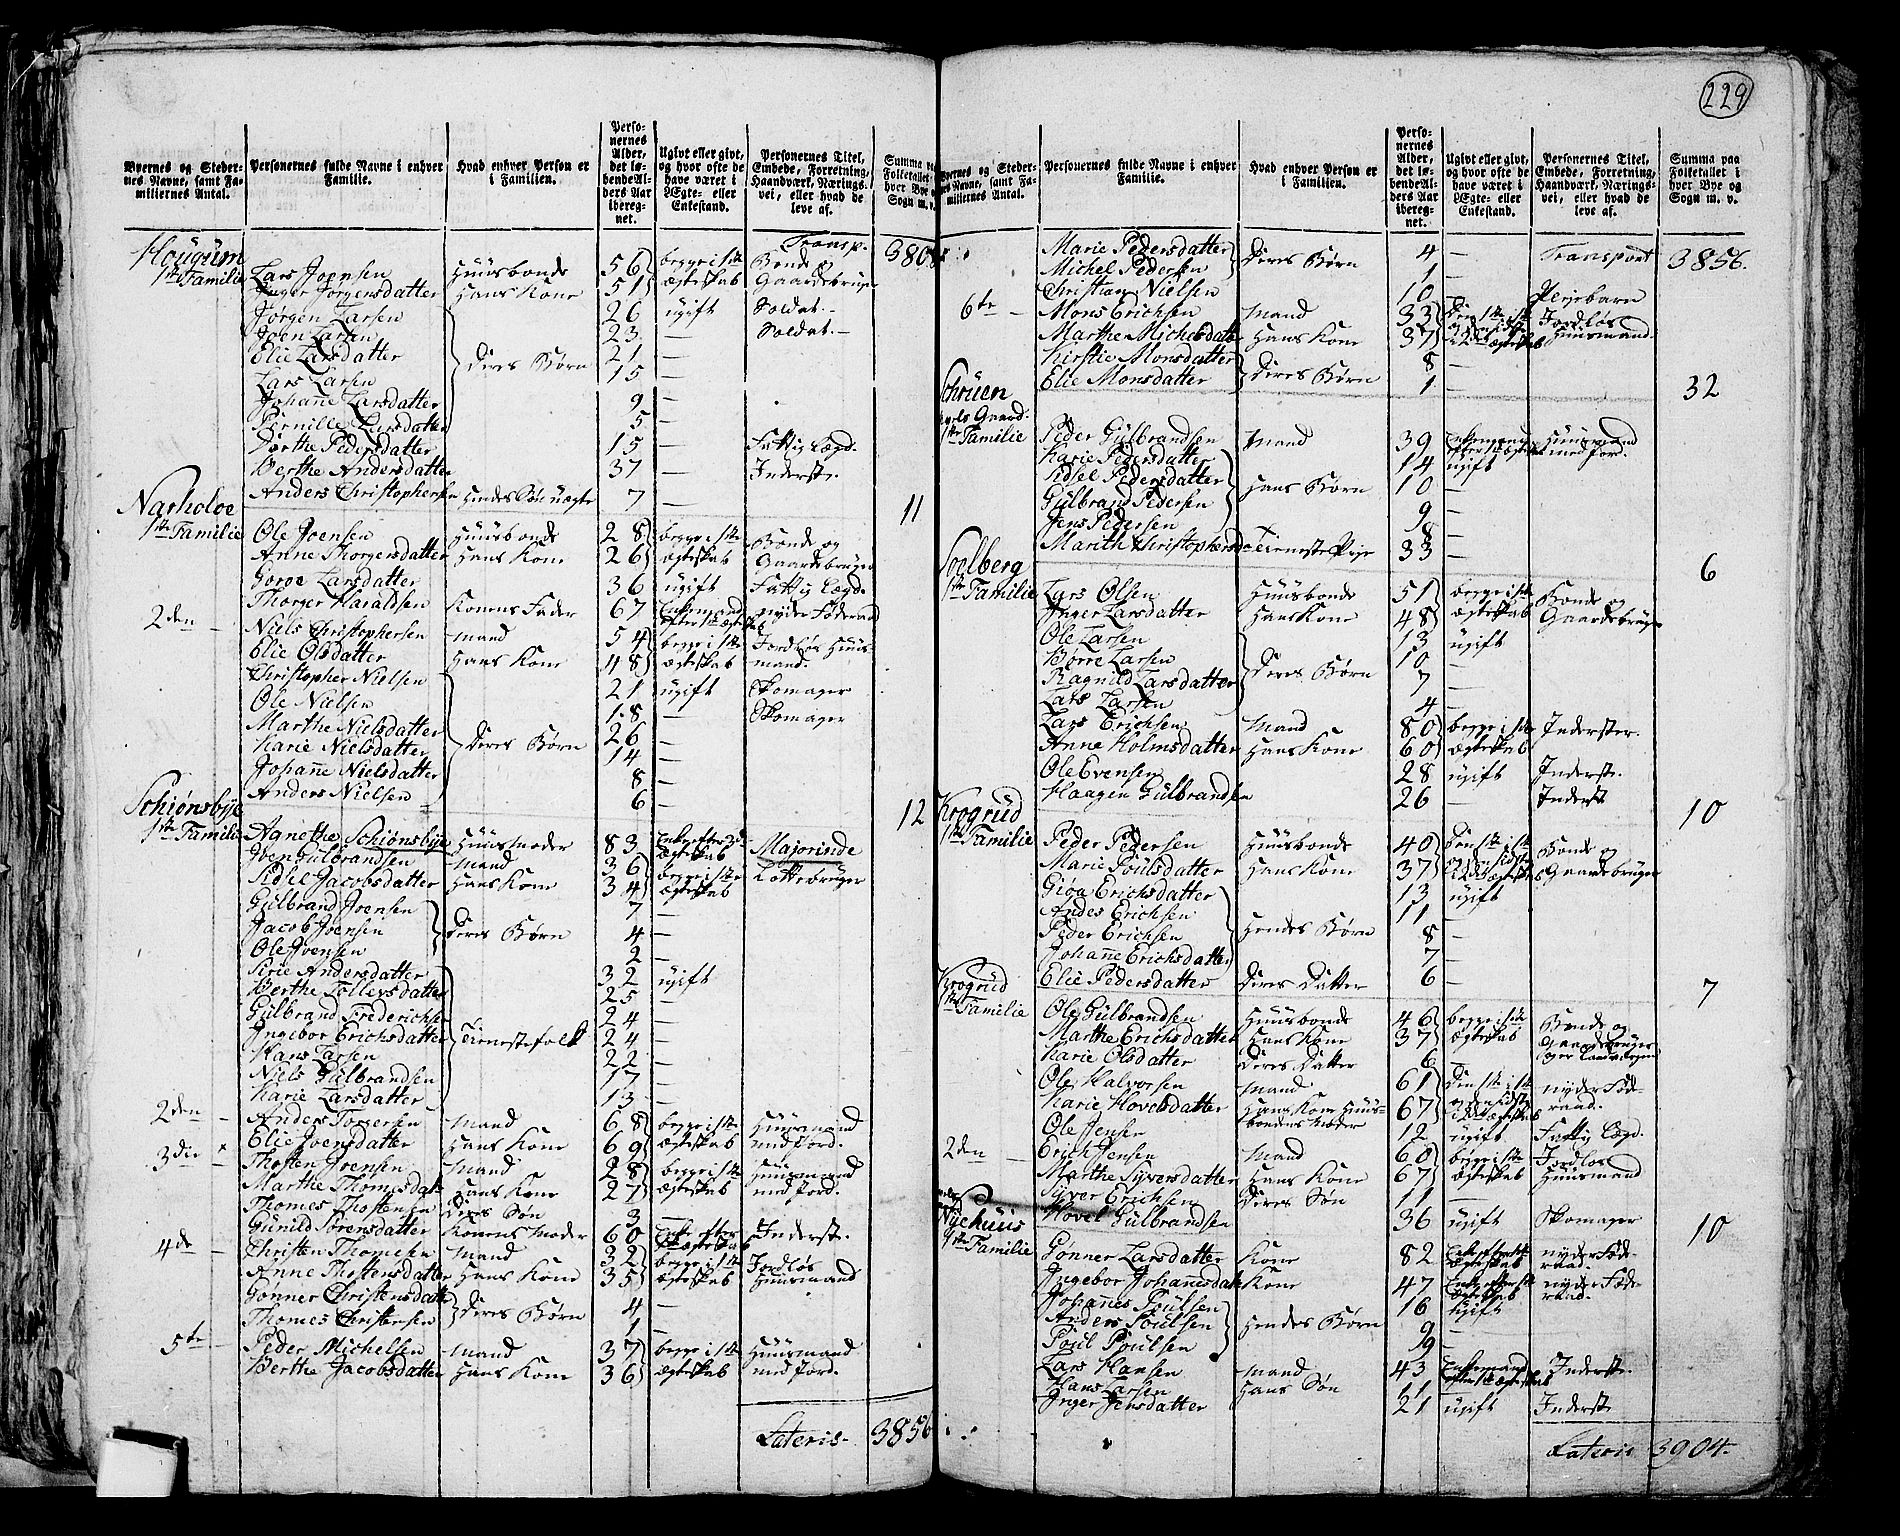 229
Byernes og Stedernes Navne, samt Familiernes Antal.
Personernes fulde Navne i enhver Familie.
Hvad enhver Person er i Familien.
Personernes Alder, det løbende Alders Aar iberegnet.
Ugivt eller givt, og hvor ofte de have været i Ægte- eller Enkestand.
Personernes Titel, Embede, Forretning, Haandværk, Næringsvei, eller hvad de leve af.
Summa paa Folketallet i hver Bye og Sogn m. v.
Transp.
Hougum
1ste Familie Lars Joensen Huusbonde 56 begge i 1ste Bonde og
Inger Jorgensdatter Hans Kone 51 ægteskab Gaardebruger
Jorgen Larsen 26 ugift Soldat
Joen Larsen 23 — Soldat
Elie Larsdatter Deres Børn 21 —
Lars Larsen 15 —
Johanne Larsdatter 9 —
Pernille Larsdatter 5 —
Dorthe Pedersdatter 15 — Fattig Lægd.
Berthe Andersdatter 37 — Inderste
Anders Christophersen Hendes Søn uægte 7 — 11
Narholoe
1ste Familie Ole Joensen Huusbonde 28 begge i 1ste Bonde og
Anne Thorgersdatter Hans Kone 26 ægteskab Gaardebruger
Goroe Larsdatter 36 ugift Fattig Lægd
Thorger Haraldsen Konens Fader 67 Enkemand efter 1ste ægteskab nyder Föderaad
2den Niels Christophersen Mand 54 begge i 1ste Jordløs Huus-
Elie Olsdatter Hans Kone 48 ægteskab mand.
Christopher Nielsen 21 ugift Skomager
Ole Nielsen 18 — Skomager
Marthe Nielsdatter 26 —
Karie Nielsdatter Deres Børn 14 —
Johanne Nielsdatter 8 —
Anders Nielsen 6 — 12
Schiønsbye
1ste Familie Agnethe Schiønsbye Huusmoder 83 Enke efter 2de ægteskab Majorinde
Iven Gulbrandsen Mand 36 begge i 1ste
Sidsel Jacobsdatter Hans Kone 34 ægteskab
Gulbrand Ivensen 7 —
Jacob Ivensen Deres Børn 4 —
Ole Ivensen 2 —
Sirie Andersdatter 32 ugift
Berthe Tollevsdatter 25 —
Gulbrand Frederichsen 24 —
Ingebor Erichsdatter Tienestefolk 24 —
Hans Larsen 22 —
Niels Gulbrandsen 17 —
Karie Larsdatter 13 —
2den Anders Torersen Mand 68 begge i 1ste Huusmand
Elie Ivensdatter Hans Kone 69 ægteskab med Jord.
3die Thosten Ivensen Mand 28 begge i 1ste Huusmand
Marthe Thomesdatt Hans Kone 27 ægteskab med Jord.
Thomes Thostensen Deres Søn 3 —
Gunild Sorensdatter Konens Moder 60 Enke efter 1ste ægteskab Inderste
4de Christen Thomesen Mand 32 begge i 1ste Jordløs
Anne Thostensdatter Hans Kone 35 ægteskab Huusmand
Gonner Christensdatter Deres Børn 4 —
Thomes Christensen 1 —
5te Peder Michelsen Mand 37 begge i 1ste Huusmand
Berthe Jacobsdatter Hans Kone 36 ægteskab med Jord.
Lateris 3856
Byernes og Stedernes Navne, samt Familiernes Antal.
Personernes fulde Navne i enhver Familie.
Hvad enhver Person er i Familien.
Personernes Alder, det løbende Alders Aar iberegnet.
Ugivt eller givt, og hvor ofte de have været i Ægte- eller Enkestand.
Personernes Titel, Embede, Forretning, Haandværk, Næringsvei, eller hvad de leve af.
Summa paa Folketallet i hver Bye og Sogn m. v.
Marie Pedersdatter Deres Børn 4 — Transport 3856.
Michel Pedersen 1 —
Christian Nielsen 10 — Plejebarn
6te Mons Erichsen Mand 33 Den 1ste i 1ste Jordløs
Marthe Michelsdatt Hans Kone 37 og den sidste i 2det ægteskab Huusmand.
Kirstie Monsdatter Deres Børn 8 —
Elie Monsdatter 1 — 32
Schruen
1ste Familie Peder Gulbrandsen Mand 39 Enkemand efter 1ste ægteskab Huusmand med Jord.
Karie Pedersdatter 14 ugift
Sidsel Pedersdatter Hans Børn 10 —
Gulbrand Pedersen 9 —
Jens Pedersen 8 —
Marith Christophersd Tieneste Pige 33 — 6
Soelberg
1ste Familie Lars Olsen Huusbonde 51 begge i 1ste Bonde og
Inger Larsdatter Hans Kone 48 ægteskab Gaardebruger
Ole Larsen 13 ugift
Børre Larsen 10 —
Ragnild Larsdatter Deres Børn 7 —
Lars Larsen 4 —
Lars Erichsen Mand 80 begge i 1ste Inderster.
Anne Holmsdatter Hans Kone 60 ægteskab
Ole Evensen 28 ugift Inderste.
Haagen Gulbrandsen 26 — Inderst 10
Krogrud
1ste Familie Peder Pedersen Huusbonde 40 Den 1ste i 1ste Bonde og
Marie Poulsdatter Hans Kone 37 og den sidste i 2det ægteskab Gaardebruger
Gioa Erichsdatter 13 ugift
Andes Erichsen 11 —
Peder Erichsen Hendes Børn 8 —
Johanne Erichsdatter 7 —
Elie Pedersdatter Deres Datter 6 — 7
Krogrud
1ste Familie Ole Gulbrandsen Huusbonde 46 begge i 1ste Bonde og
Marthe Erichsdatter Hans Kone 37 ægteskab Gaardebruger
Karie Olsdatter Deres Datter 6 —
Ole Halvorsen Mand 61 Den 1ste i 1ste nyder Föde-
Karie Hovelsdatter Hans Kone Huus- 67 og den sidste i 2det ægteskab raad.
Ole Jensen bondens Moder 12 ugift Fattig Lægd.
2den Erich Jensen Mand 60 begge i 1ste Jordløs
Marthe Syversdatter Hans Kone 67 ægteskab Huusmand
Syver Erichsen Deres Søn 11 —
Hovel Gulbrandsen 36 ugift Skomager 10
Nyehuus
1ste Familie Gonner Larsdatter Kone 82 nyder Föde-raad.
Ingebor Johanesdatt Kone 47 Enke efter 1ste ægteskab nyder Föde-raad.
Johannes Poulsen 16 ugift
Anders Poulsen Hendes Børn 9 —
Poul Poulsen 9 —
Lars Hansen Mand 43 Enkemand efter 1ste ægteskab Inderste.
Hans Larsen Hans Søn 11 —
Inger Jensdatter 21 ugift Inderste
Lateris 3904.